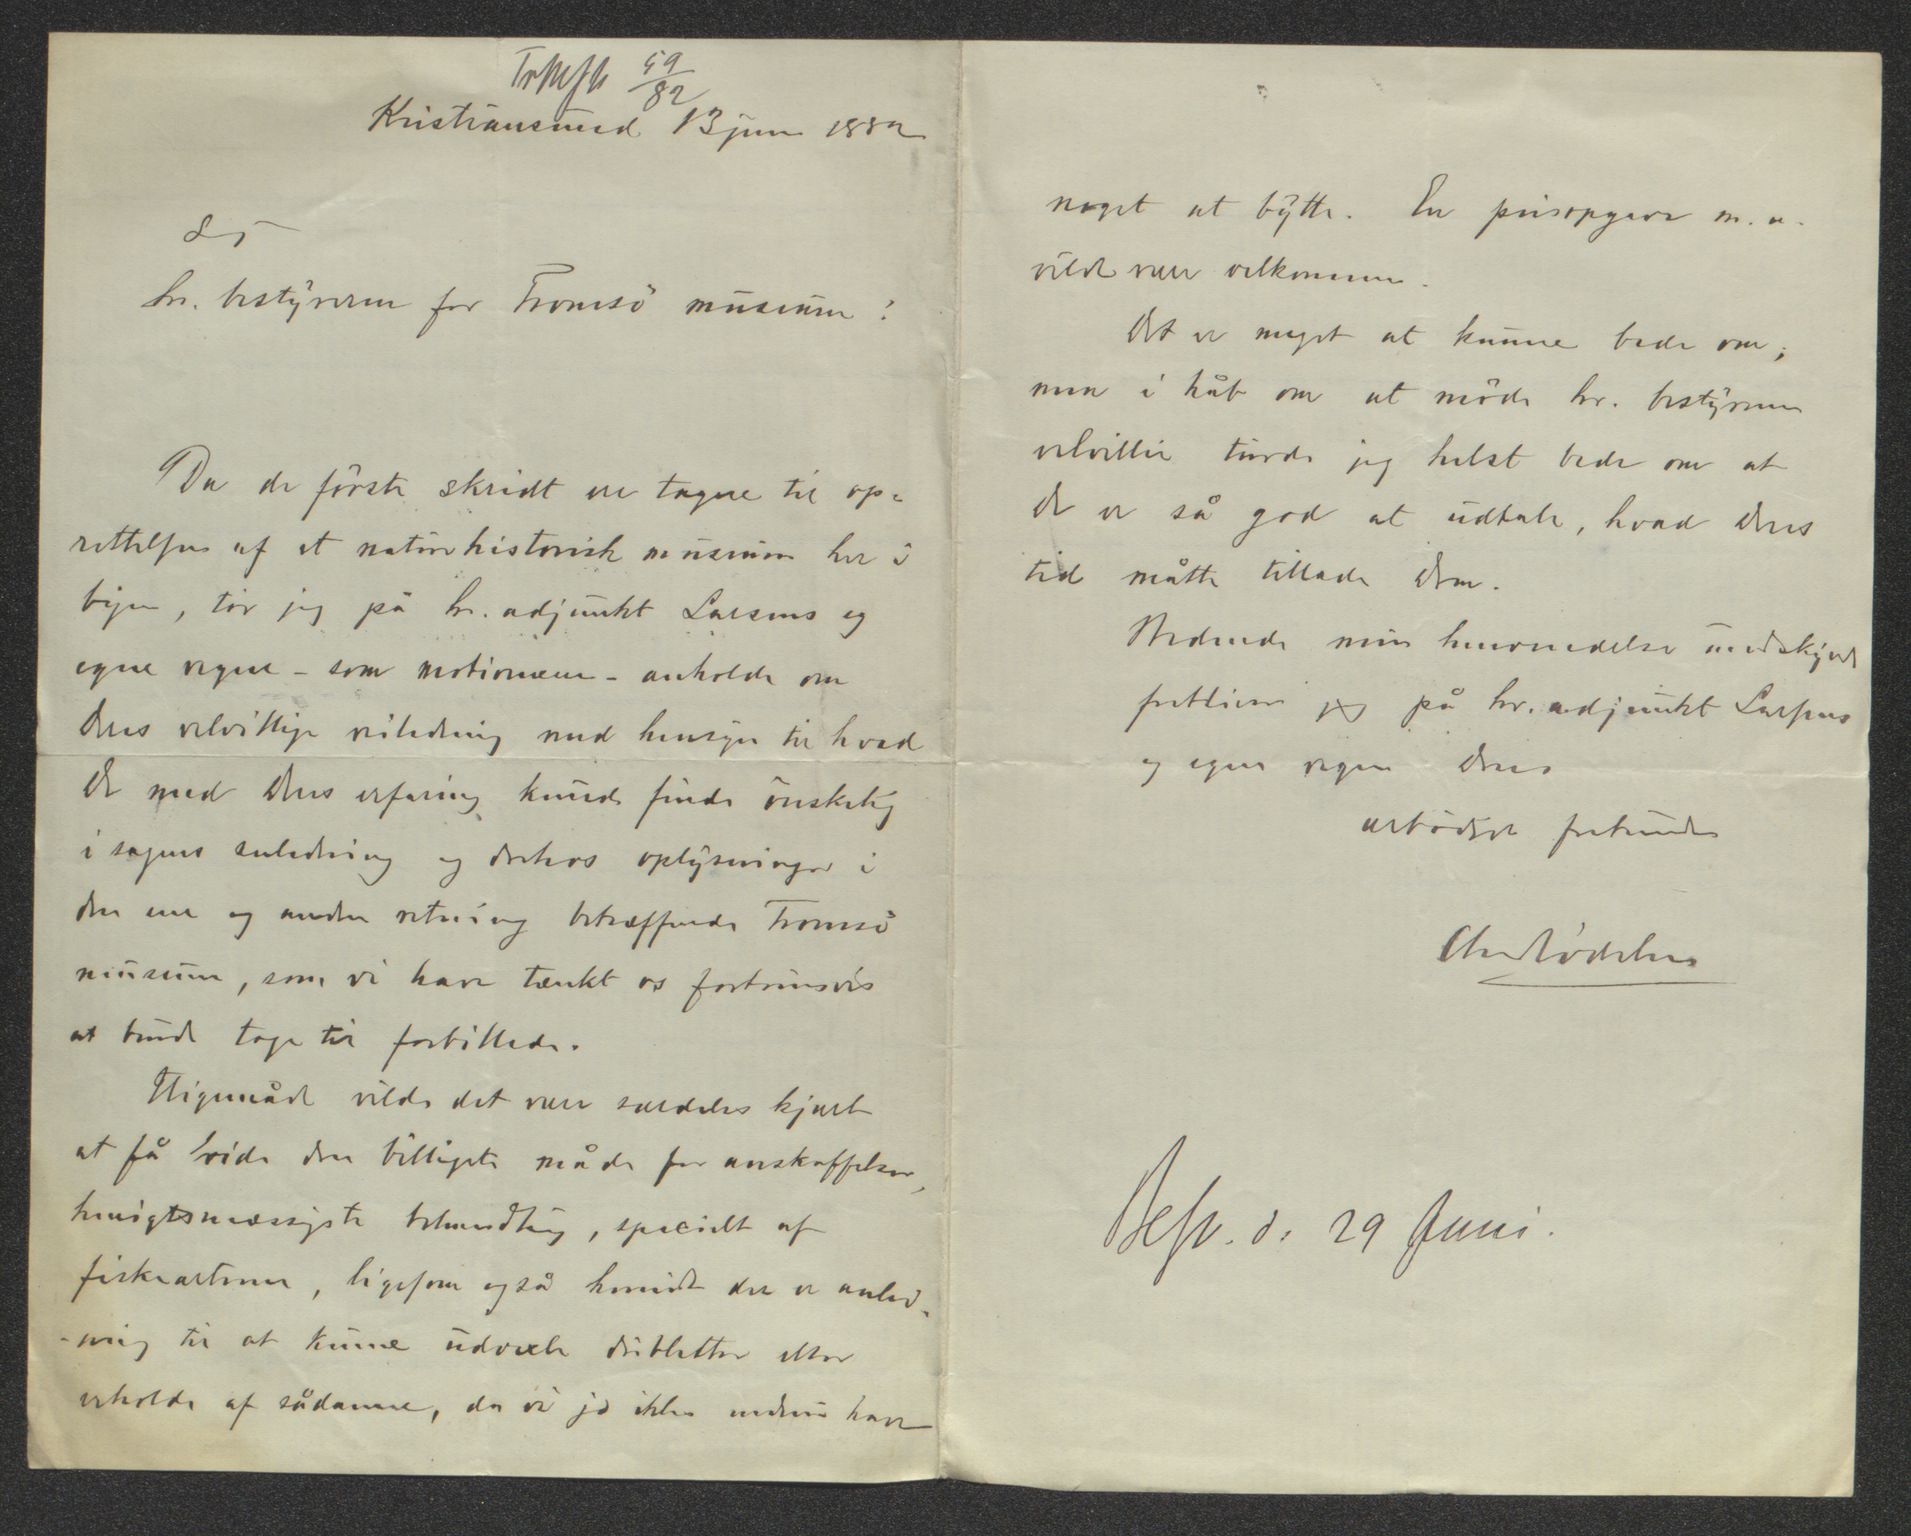 59/82
Kristiansund 13 juni 1882
hr. bestyreren for Tromsö museum!
Da de förste skridt ere tagne til op-
rettelsen af et naturhistorisk museum her i
byen, tör jeg på hr. adjunkt Larsens og
egne vegne - som motionærer - anholde om
Deres velvillige veiledning med hensyn til hvad
De med Deres erfaring kunde finde önskelig
i sagens anledning og derhos oplysninger i
den ene og anden retning betræffende Tromsö
museum, som vi have tænkt os fortrinsvis
at burde tage til forbillede.
Ligemåde vilde det være særdeles kjært
at få vide den billigste måde for anskaffelser,
hensigtsmæssigste behandling, specielt af
fiskearterne, ligesom også hvorvidt der er anled-
-ning til at kunne udvexle dubletter eller
erholde af sådanne, da vi jo ikke endnu have
noget at bytte. En prisopgave m. a.
vilde være velkommen.
Det er meget at kunne bede om;
men i håb om at möde hr. bestyrerens
velvillie turde jeg helst bede om at
De er så god at udtale, hvad Deres
tid måtte tillade Dem.
Bedende min henvendelse undskyldt
forbliver jeg på hr. adjunkt Larsens
og egne vegne Deres
ærbödigst forbundne
Besv. d. 29 Juni.